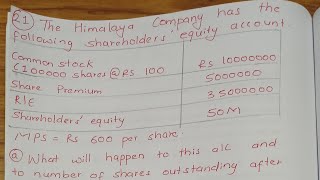 Q1) The Himalaya Company has the
following shareholders' equity account
Common stock
(100000 shares @ RS 100 RS 10000000
Share Premium 5000000
R/E 35000000
Shareholders' equity 50M
MPS = Rs 600 per share.
(a) What will happen to this a/c and
to number of shares outstanding after